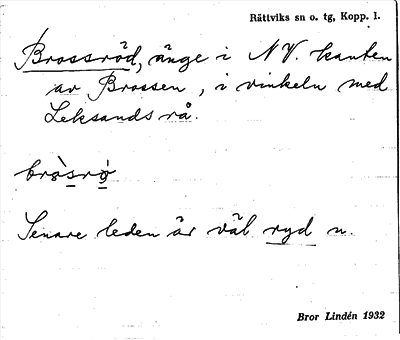 Rättviks sn o. tg, Kopp. l.
Brossröd, änge i NV. kanten
av Brossen, i vinkeln med
Leksands rå.
brò̠srö̀
Senare leden är väl ryd n.
Bror Lindén 1932